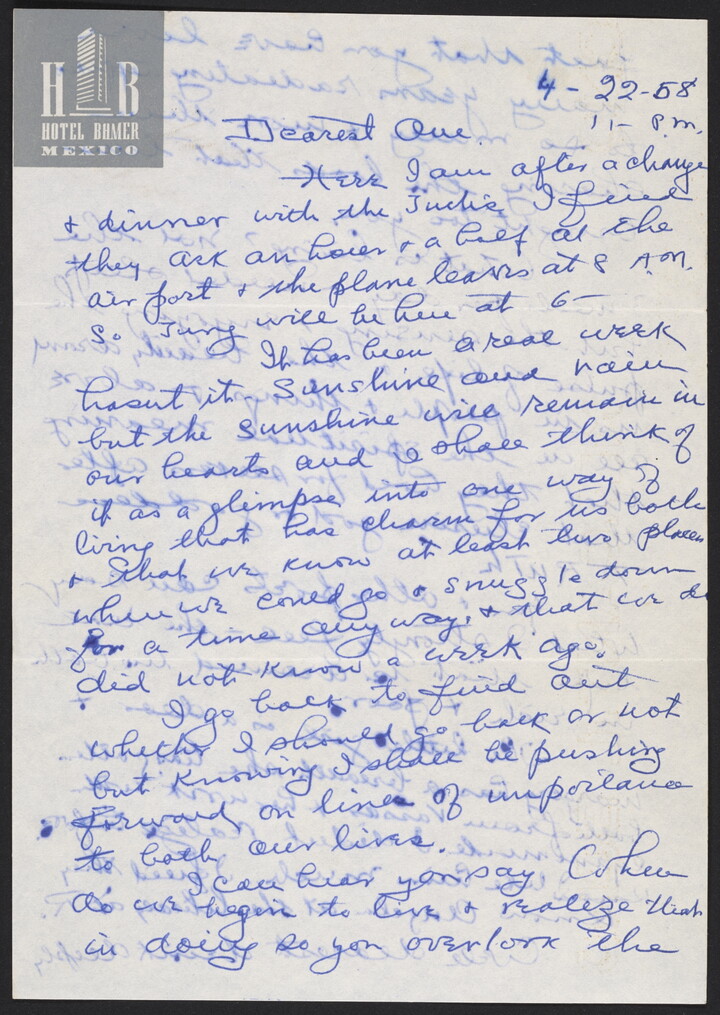 H B
HOTEL BAMER
MEXICO
4-22-58
11- P.M.
Dearest One.
Here I am after a change
& dinner with the I find
they ask an hour & a half at the
air port & the plane leaves at 8 A.M.
So will be here at 6-
It has been a real week
hasnt it. Sunshine and rain
but the sunshine will remain in
our hearts and I shall think of
it as a glimpse into one way of
living that has charm for us both
& that we know at least two places
where we could go & snuggle down
for a time anyway. & that we
did not know a week ago.
I go back to find out
whether I should go back or not
but knowing I shall be pushing
forward on line of importance
to both our lives.
I can hear you say When
do we begin to live & realize that
in doing so you overlook the